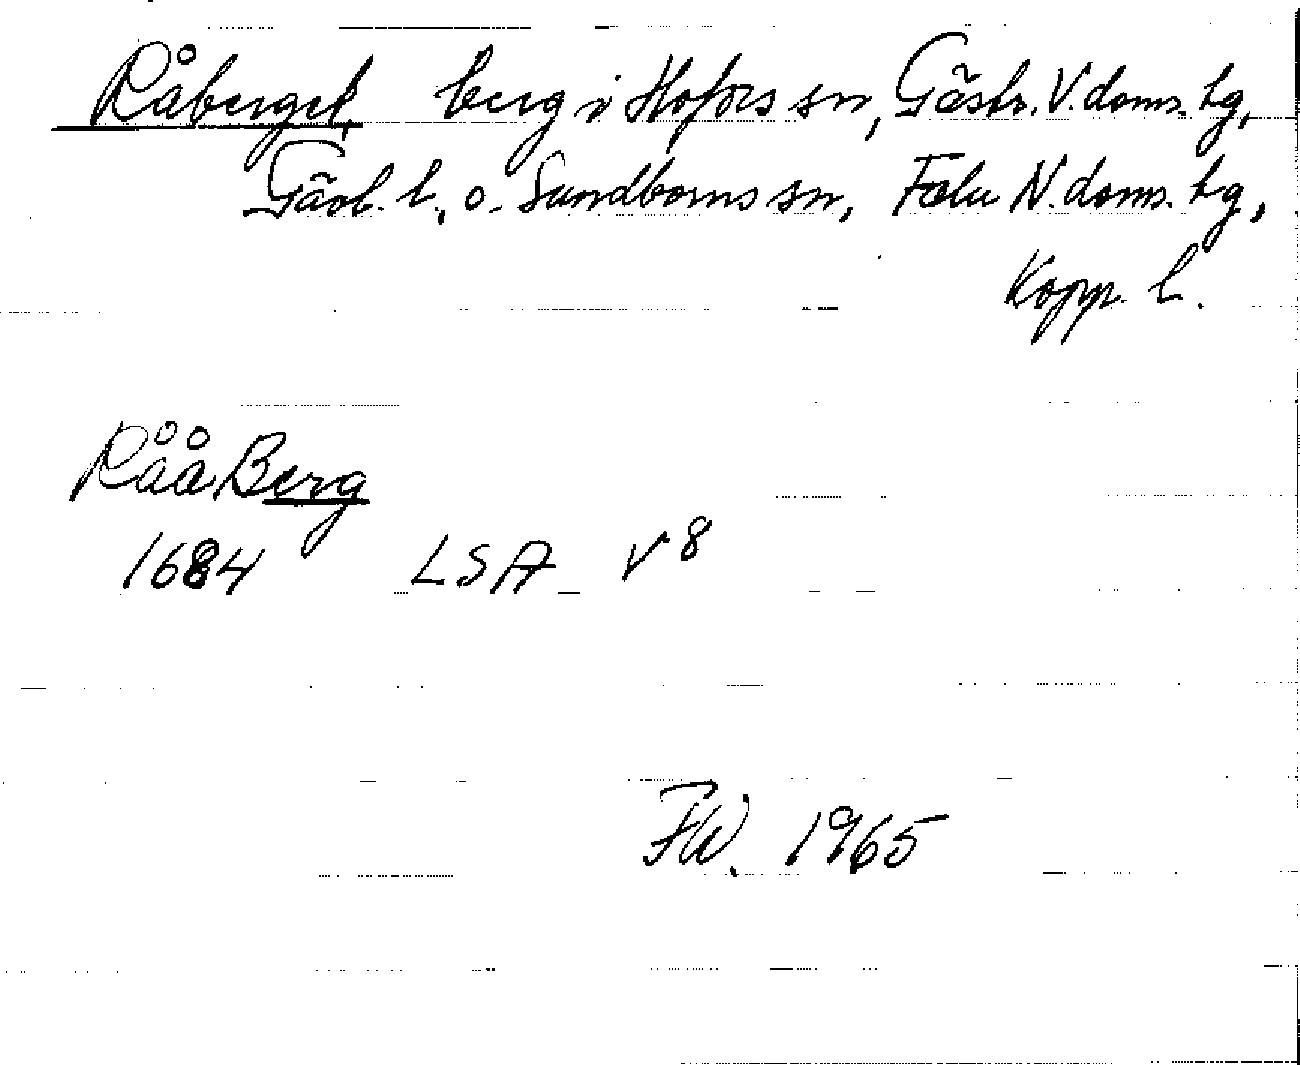 Råberget, berg i Hofors sn, Gästr. V. doms. tg,
Gävl. l., o. Sundborns sn, Falu N. doms. tg,
Kopp. l.
Råå Berg
1684 LSA V 8
FW. 1965